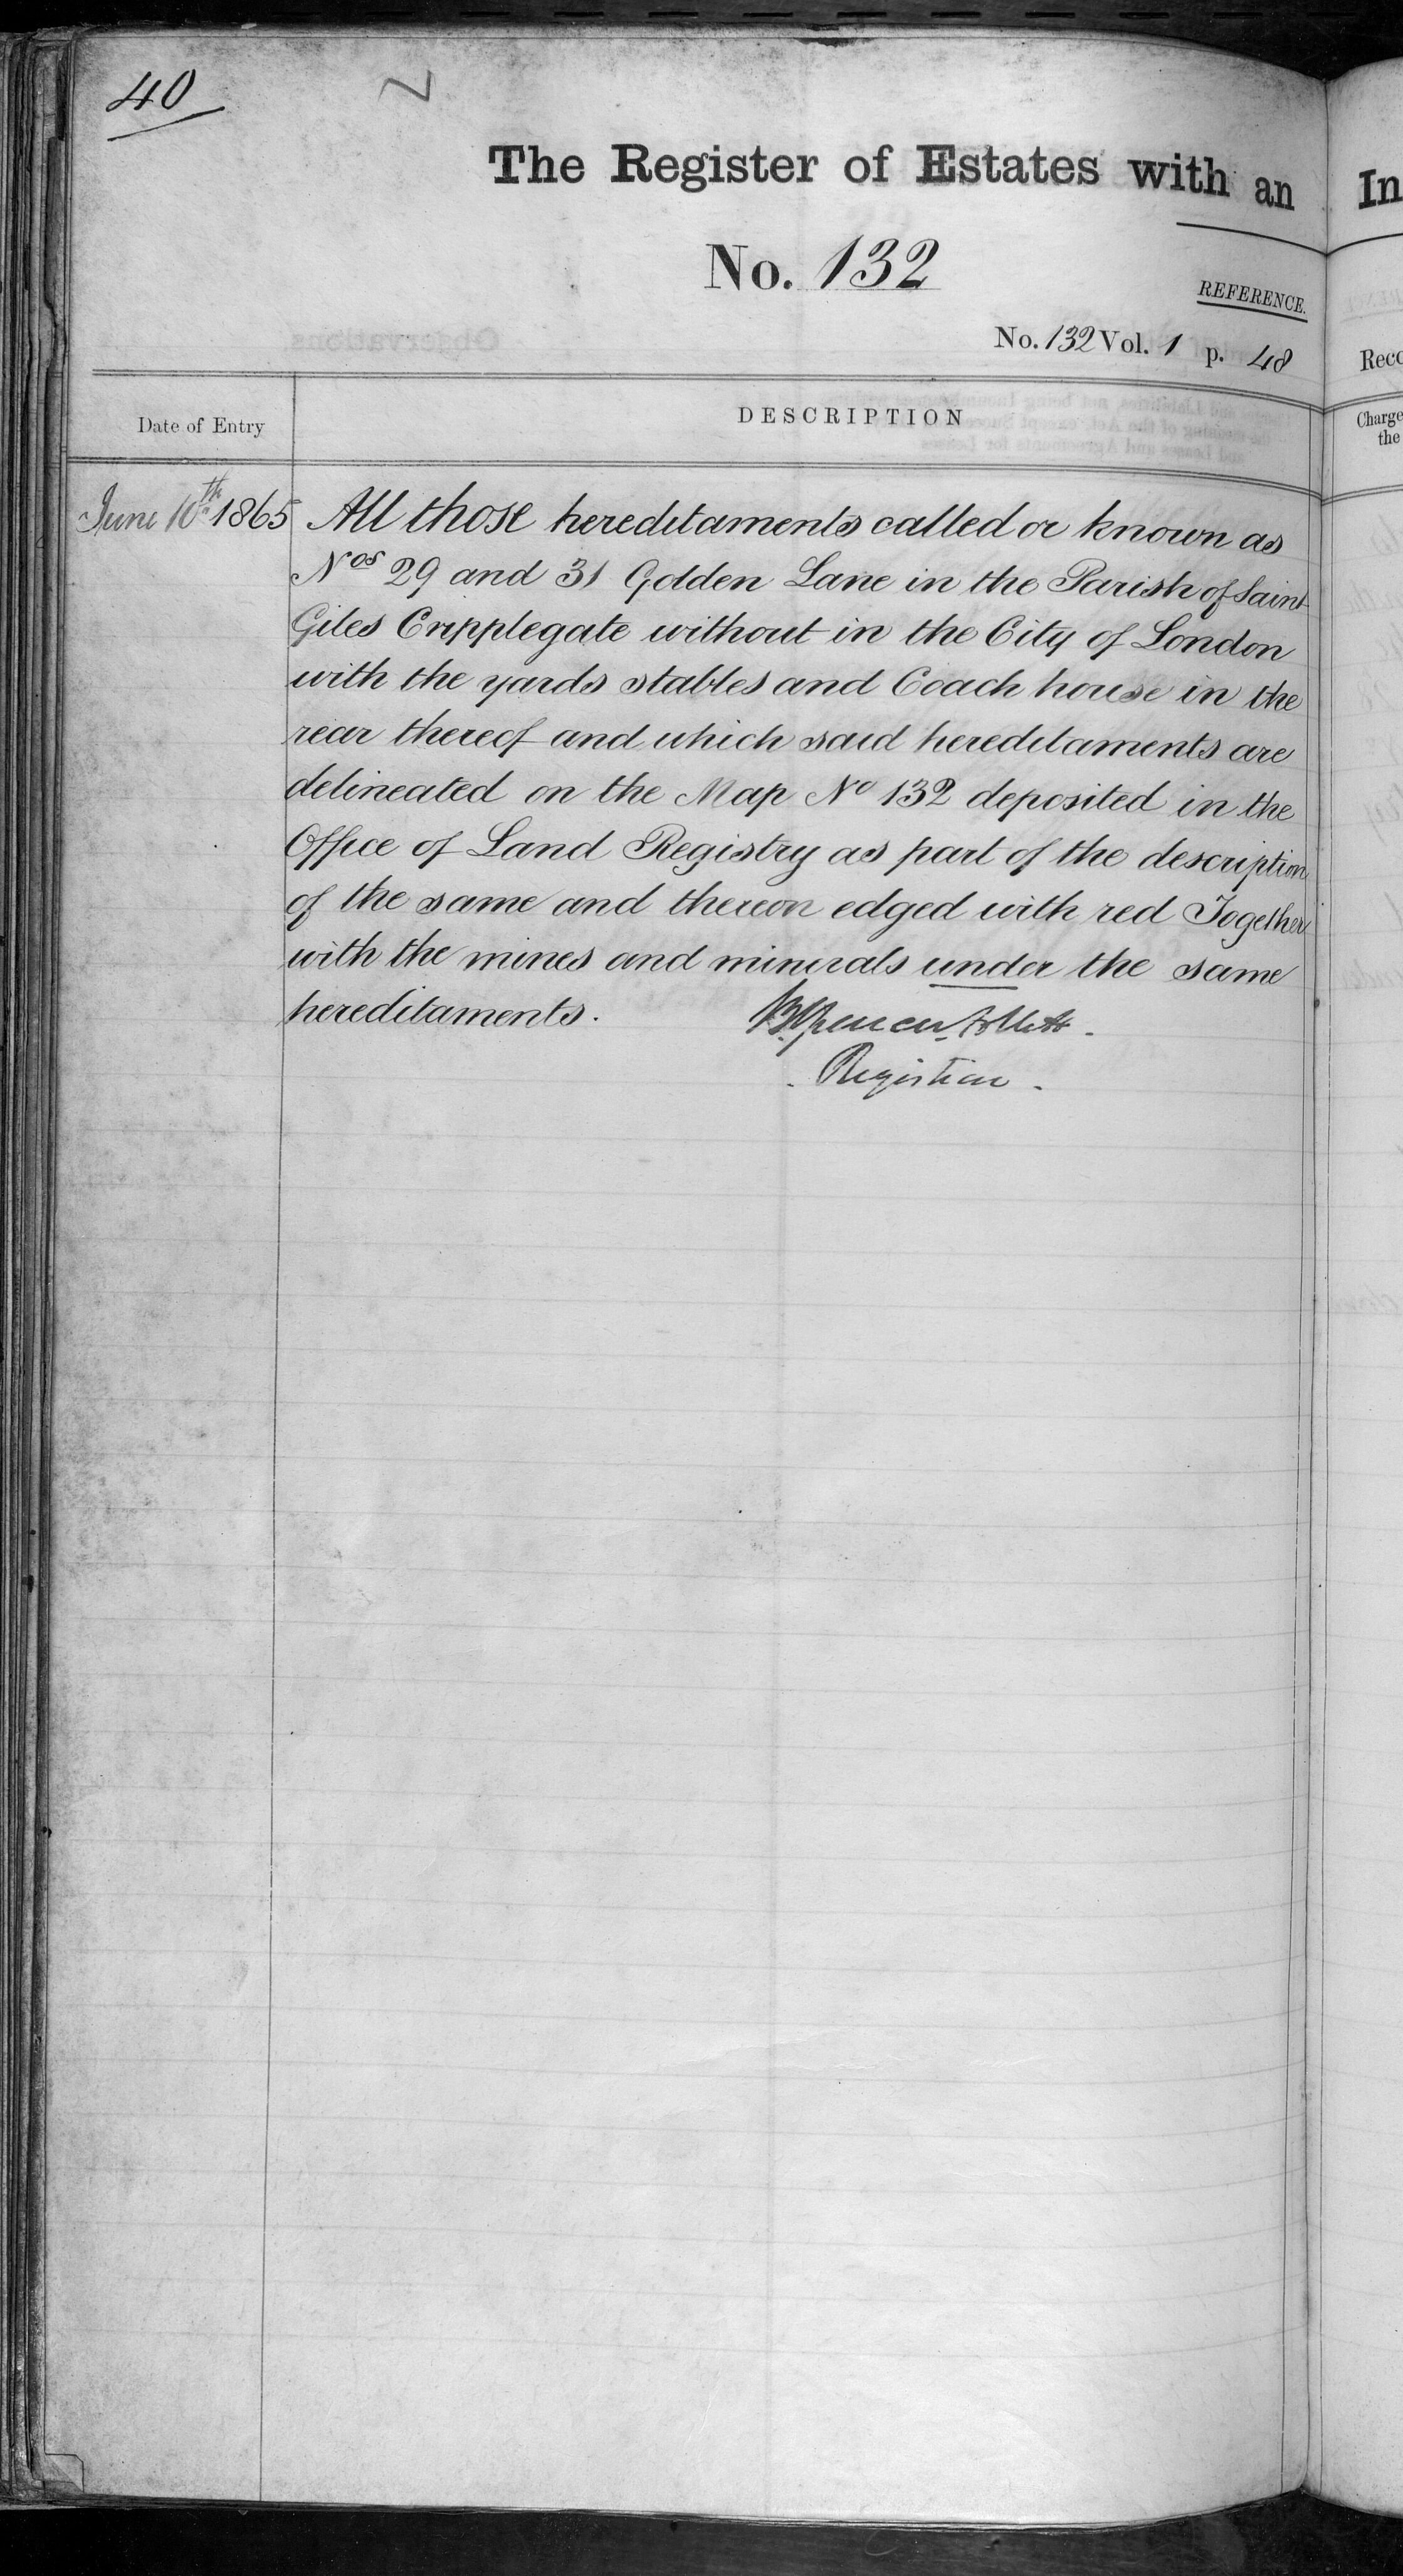 40
The Register of Estates with an
No. 132
REFERENCE.
No. 132 Vol. 1 p. 48
Date of Entry
DESCRIPTION
June 10th 1865
All those hereditaments called or known as
Nos 29 and 31 Golden Lane in the Parish of Saint
Giles Cripplegate without in the City of London
with the yards stables and Coach house in the
rear thereof and which said hereditaments are
delineated on the Map No 132 deposited in the
Office of Land Registry as part of the description
of the same and thereon edged with red Together
with the mines and minerals under the same
hereditaments.
Spencer Follett
Registrar
In
Reco
Charge
the